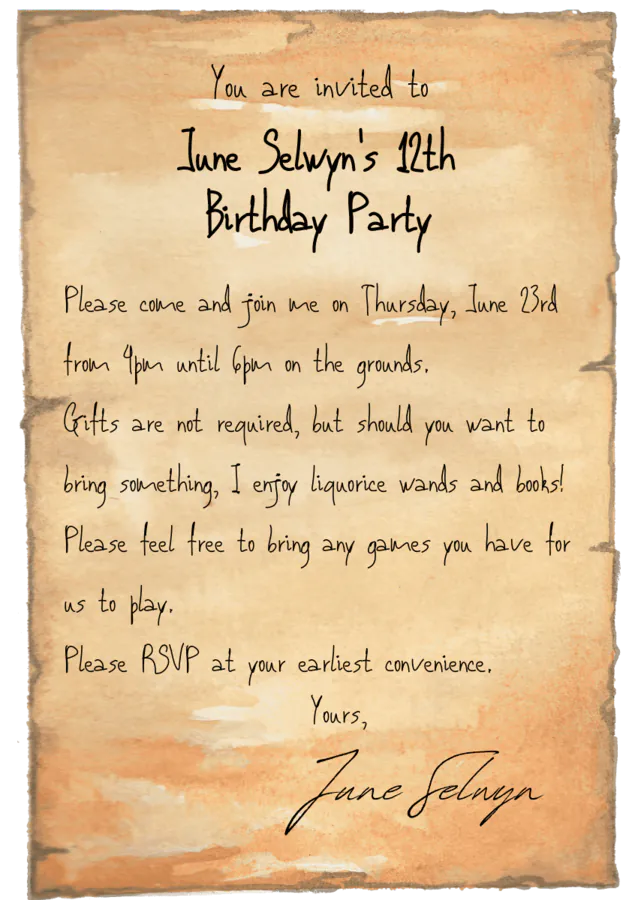 You are invited to
June Selwyn's 12th
Birthday Party
Please come and join me on Thursday, June 23rd
from 4pm until 6pm on the grounds.
Gifts are not required, but should you want to
bring something, I enjoy liquorice wands and books!
Please feel free to bring any games you have for
us to play.
Please RSVP at your earliest convenience.
Yours,
June Selwyn